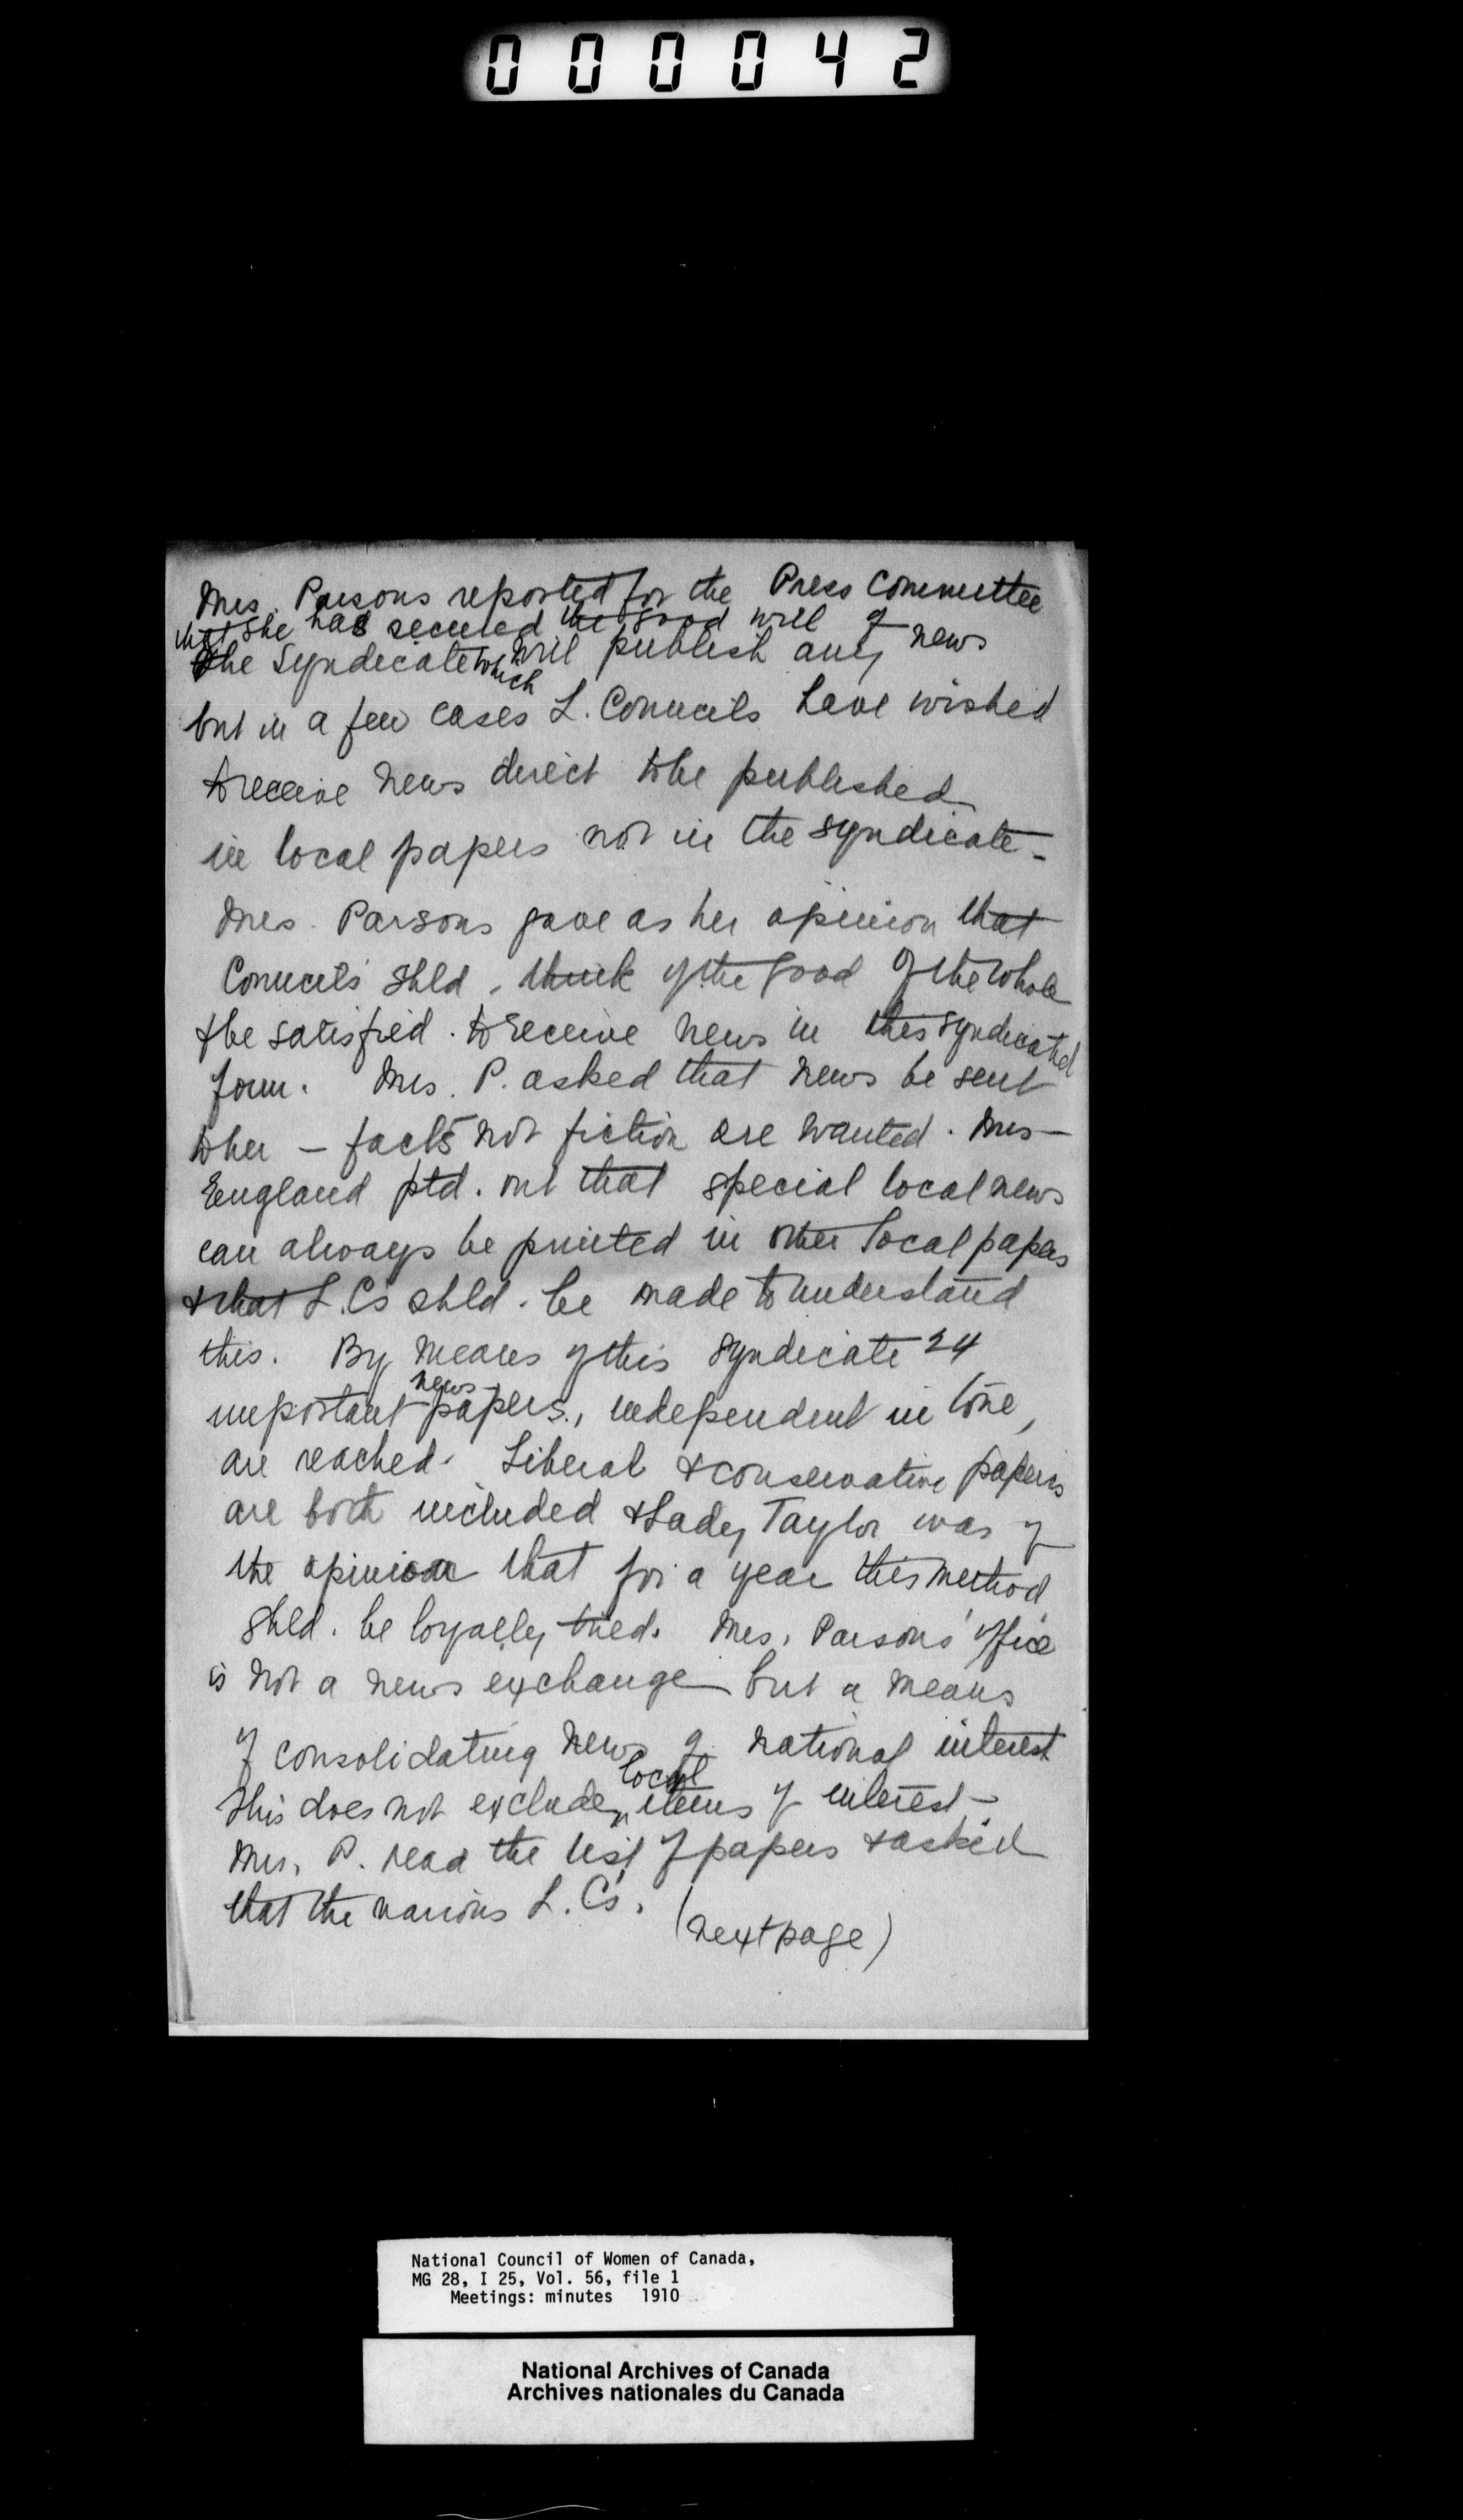 000042
Mrs. Parsons reported for the Press Committee
that she has secured the good will of
the Syndicate which will publish any news
but in a few cases L. Councils have wished
to receive news direct to be published
in local papers not in the syndicate -
Mrs. Parsons gave as her opinion that
Councils shld. think of the good of the whole
& be satisfied to receive news in this syndicated
form. Mrs. P. asked that news be sent
to her - facts not fiction are wanted. Mrs
England ptd. out that special local news
can always be printed in other local papers
& that L.Cs shld. be made to understand
this. By means of this syndicate 24
important news-papers, independent in tone,
are reached. Liberal & conservative papers
are both included & Lady Taylor was of
the opinion that for a year this method
shld. be loyally tried. Mrs. Parsons' office
is not a news exchange but a means
of consolidating news of national interest
This does not exclude local items of interest -
Mrs. P. read the list of papers & asked
that the various L. Cs.
(next page)
National Council of Women of Canada,
MG 28, I 25, Vol. 56, file 1
Meetings: minutes 1910
National Archives of Canada
Archives nationales du Canada